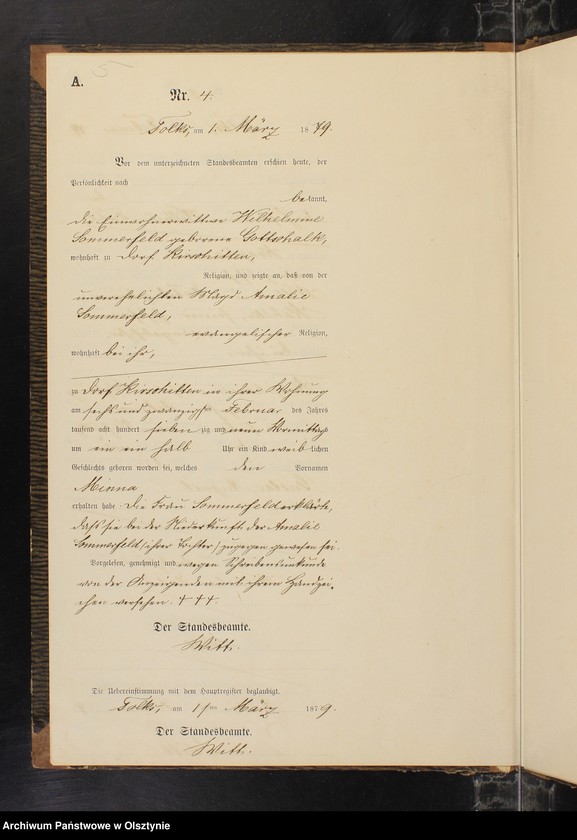 A.
Nr. 4.
Tolks, am 1. März 1879.
Vor dem unterzeichneten Standesbeamten erschien heute, der
Persönlichkeit nach
bekannt,
die Einwohnerwittwe Wilhelmine
Sommerfeld geborene Gottschalk,
wohnhaft zu Dorf Kirschitten,
Religion, und zeigte an, daß von der
unverehelichten Magd Amalie
Sommerfeld,
evangelischer Religion,
wohnhaft bei ihr,
zu Dorf Kirschitten in ihrer Wohnung
am sechs und zwanzigst Februar des Jahres
tausend acht hundert siebenzig und neun Vormittags
um ein ein halb Uhr ein Kind weiblichen
Geschlechts geboren worden sei, welches den Vornamen
Minna
erhalten habe. Die Frau Sommerfeld erklärte,
daß sie bei der Niederkunft der Amalie
Sommerfeld (ihrer Tochter) zugegen gewesen sei.
Vorgelesen, genehmigt und wegen Schreibensunkunde
von der Anzeigenden mit ihrem Handzei-
chen versehen. +++.
Der Standesbeamte.
Witt.
Die Uebereinstimmung mit dem Hauptregister beglaubigt.
Tolks, am 1ten März 1879.
Der Standesbeamte.
Witt.
Archiwum Państwowe w Olsztynie